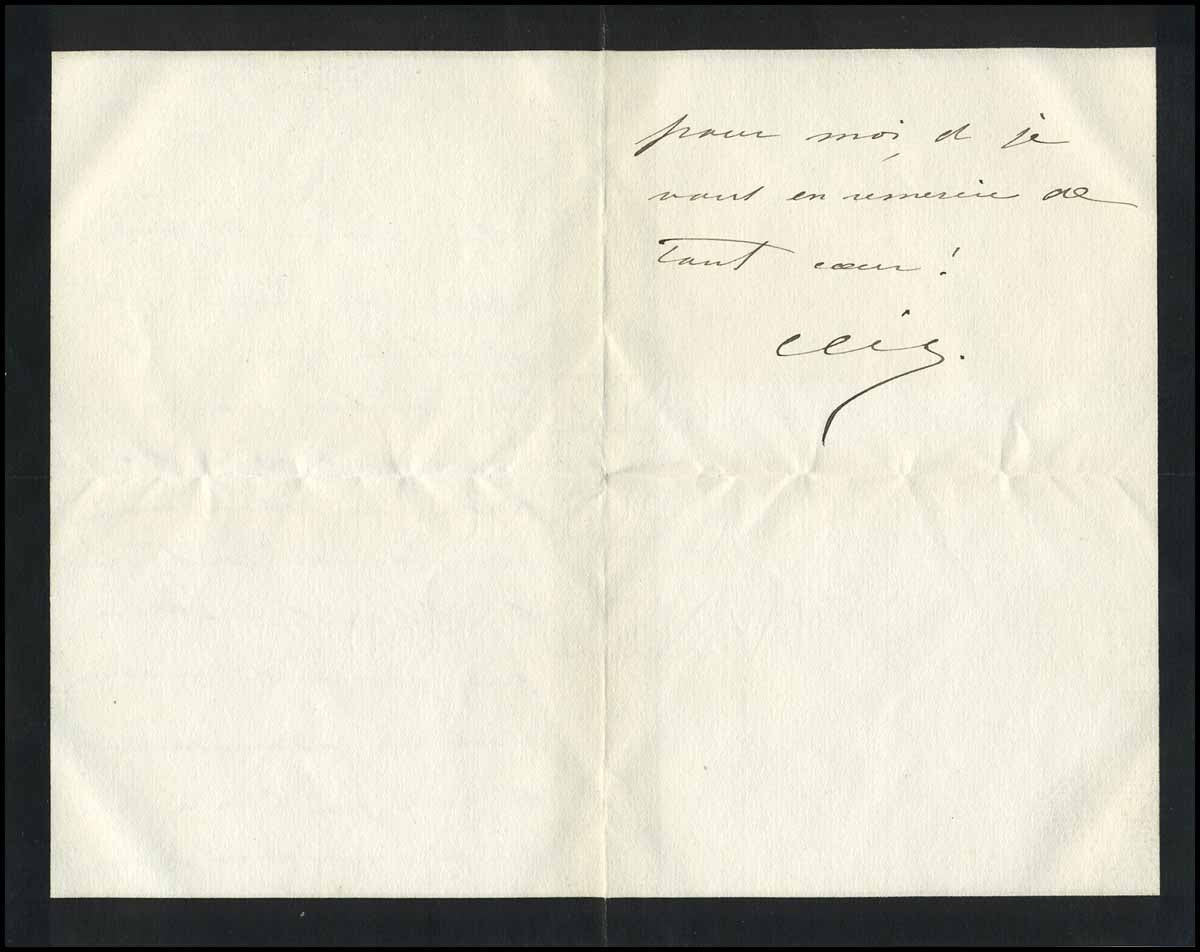 pour moi, et je
vous en remercie de
tout cœur !